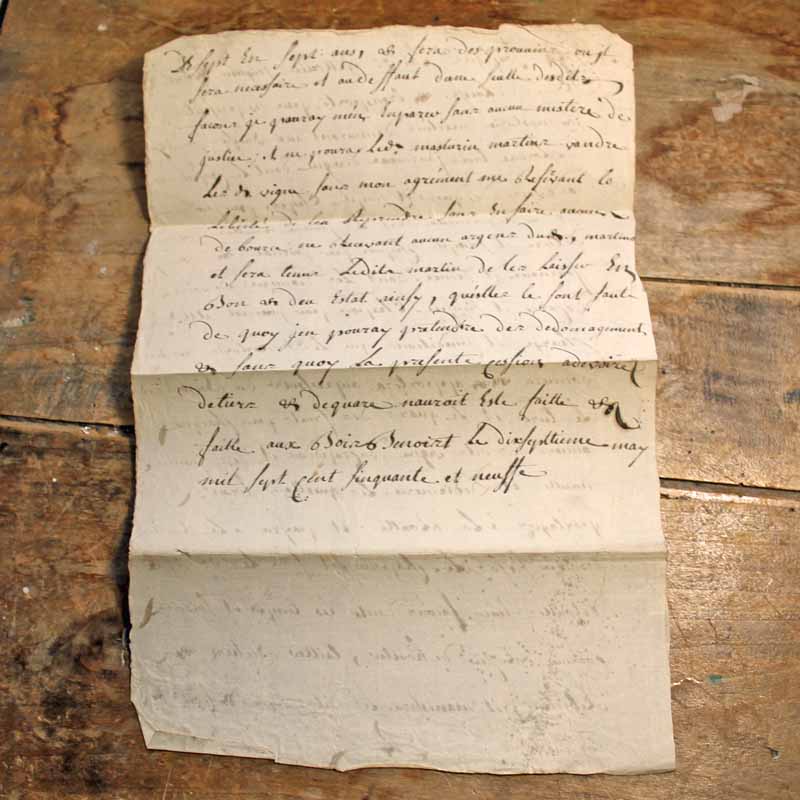 de sept en sept ans, & fera des prouuins ou jl
sera necessaire et au deffaut dune seulle desdittes
facons je pouray men emparer sans aucun mistere de
justice, et ne poura ledt mathurin martin vandre
les de vigne sans mon agrément me reservant la
liberté de les reprendre sans en faire aucun
de bource ne recevant aucun argent dudt, martin
et sera tenu ledit martin de les laisser en
Bon & deu Estat ainsy, quil les le font faute
de quoy jen pouray pretendre des dedomagement
& sans quoy la presente cession
detiers & dequare nauroit este faitte &a
faitte aux Bois Benoist le dixseptieme may
mil sept cent sinquante et neuffe